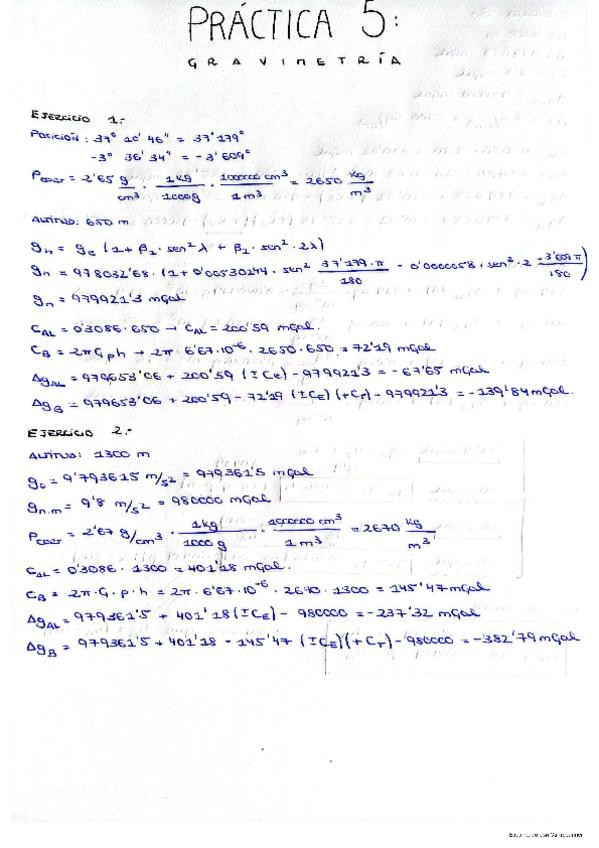 PRÁCTICA 5:
GRAVIMETRÍA
EJERCICIO 1.-
POSICIÓN: 37° 10' 46" = 37'179°
-3° 36' 34" = -3'609°
ρcorr = 2'65 g/cm³ · 1kg/1000g · 1000000 cm³/1m³ = 2650 kg/m³
ALTITUD: 650 m
gn = ge (1 + β1 · sen²λ + β2 · sen²·2λ)
gn = 978032'68 · (1 + 0'00530244 · sen² 37'179·π/180 - 0'0000058 · sen²·2 -3'609π/180)
gn = 979921'3 mGal
CAL = 0'3086·650 → CAL = 200'59 mGal.
CB = 2πGρh → 2π·6'67·10⁻⁶·2650·650 = 72'19 mGal
ΔgAL = 979653'06 + 200'59 (±CE) - 979921'3 = -67'65 mGal
ΔgB = 979653'06 + 200'59 - 72'19 (±CE)(+Cr) - 979921'3 = -139'84 mGal.
EJERCICIO 2.-
ALTITUD: 1300 m
go = 9'793615 m/s² = 979361'5 mGal
gn.m = 9'8 m/s² = 980000 mGal
ρcorr = 2'67 g/cm³ · 1kg/1000g · 1000000 cm³/1 m³ = 2670 kg/m³
CAL = 0'3086 · 1300 = 401'18 mGal.
CB = 2π·G·ρ·h = 2π·6'67·10⁻⁶ · 2670 · 1300 = 145'47 mGal
ΔgAL = 979361'5 + 401'18 (±CE) - 980000 = -237'32 mGal
ΔgB = 979361'5 + 401'18 - 145'47 (±CE)(+Cr) - 980000 = -382'79 mGal